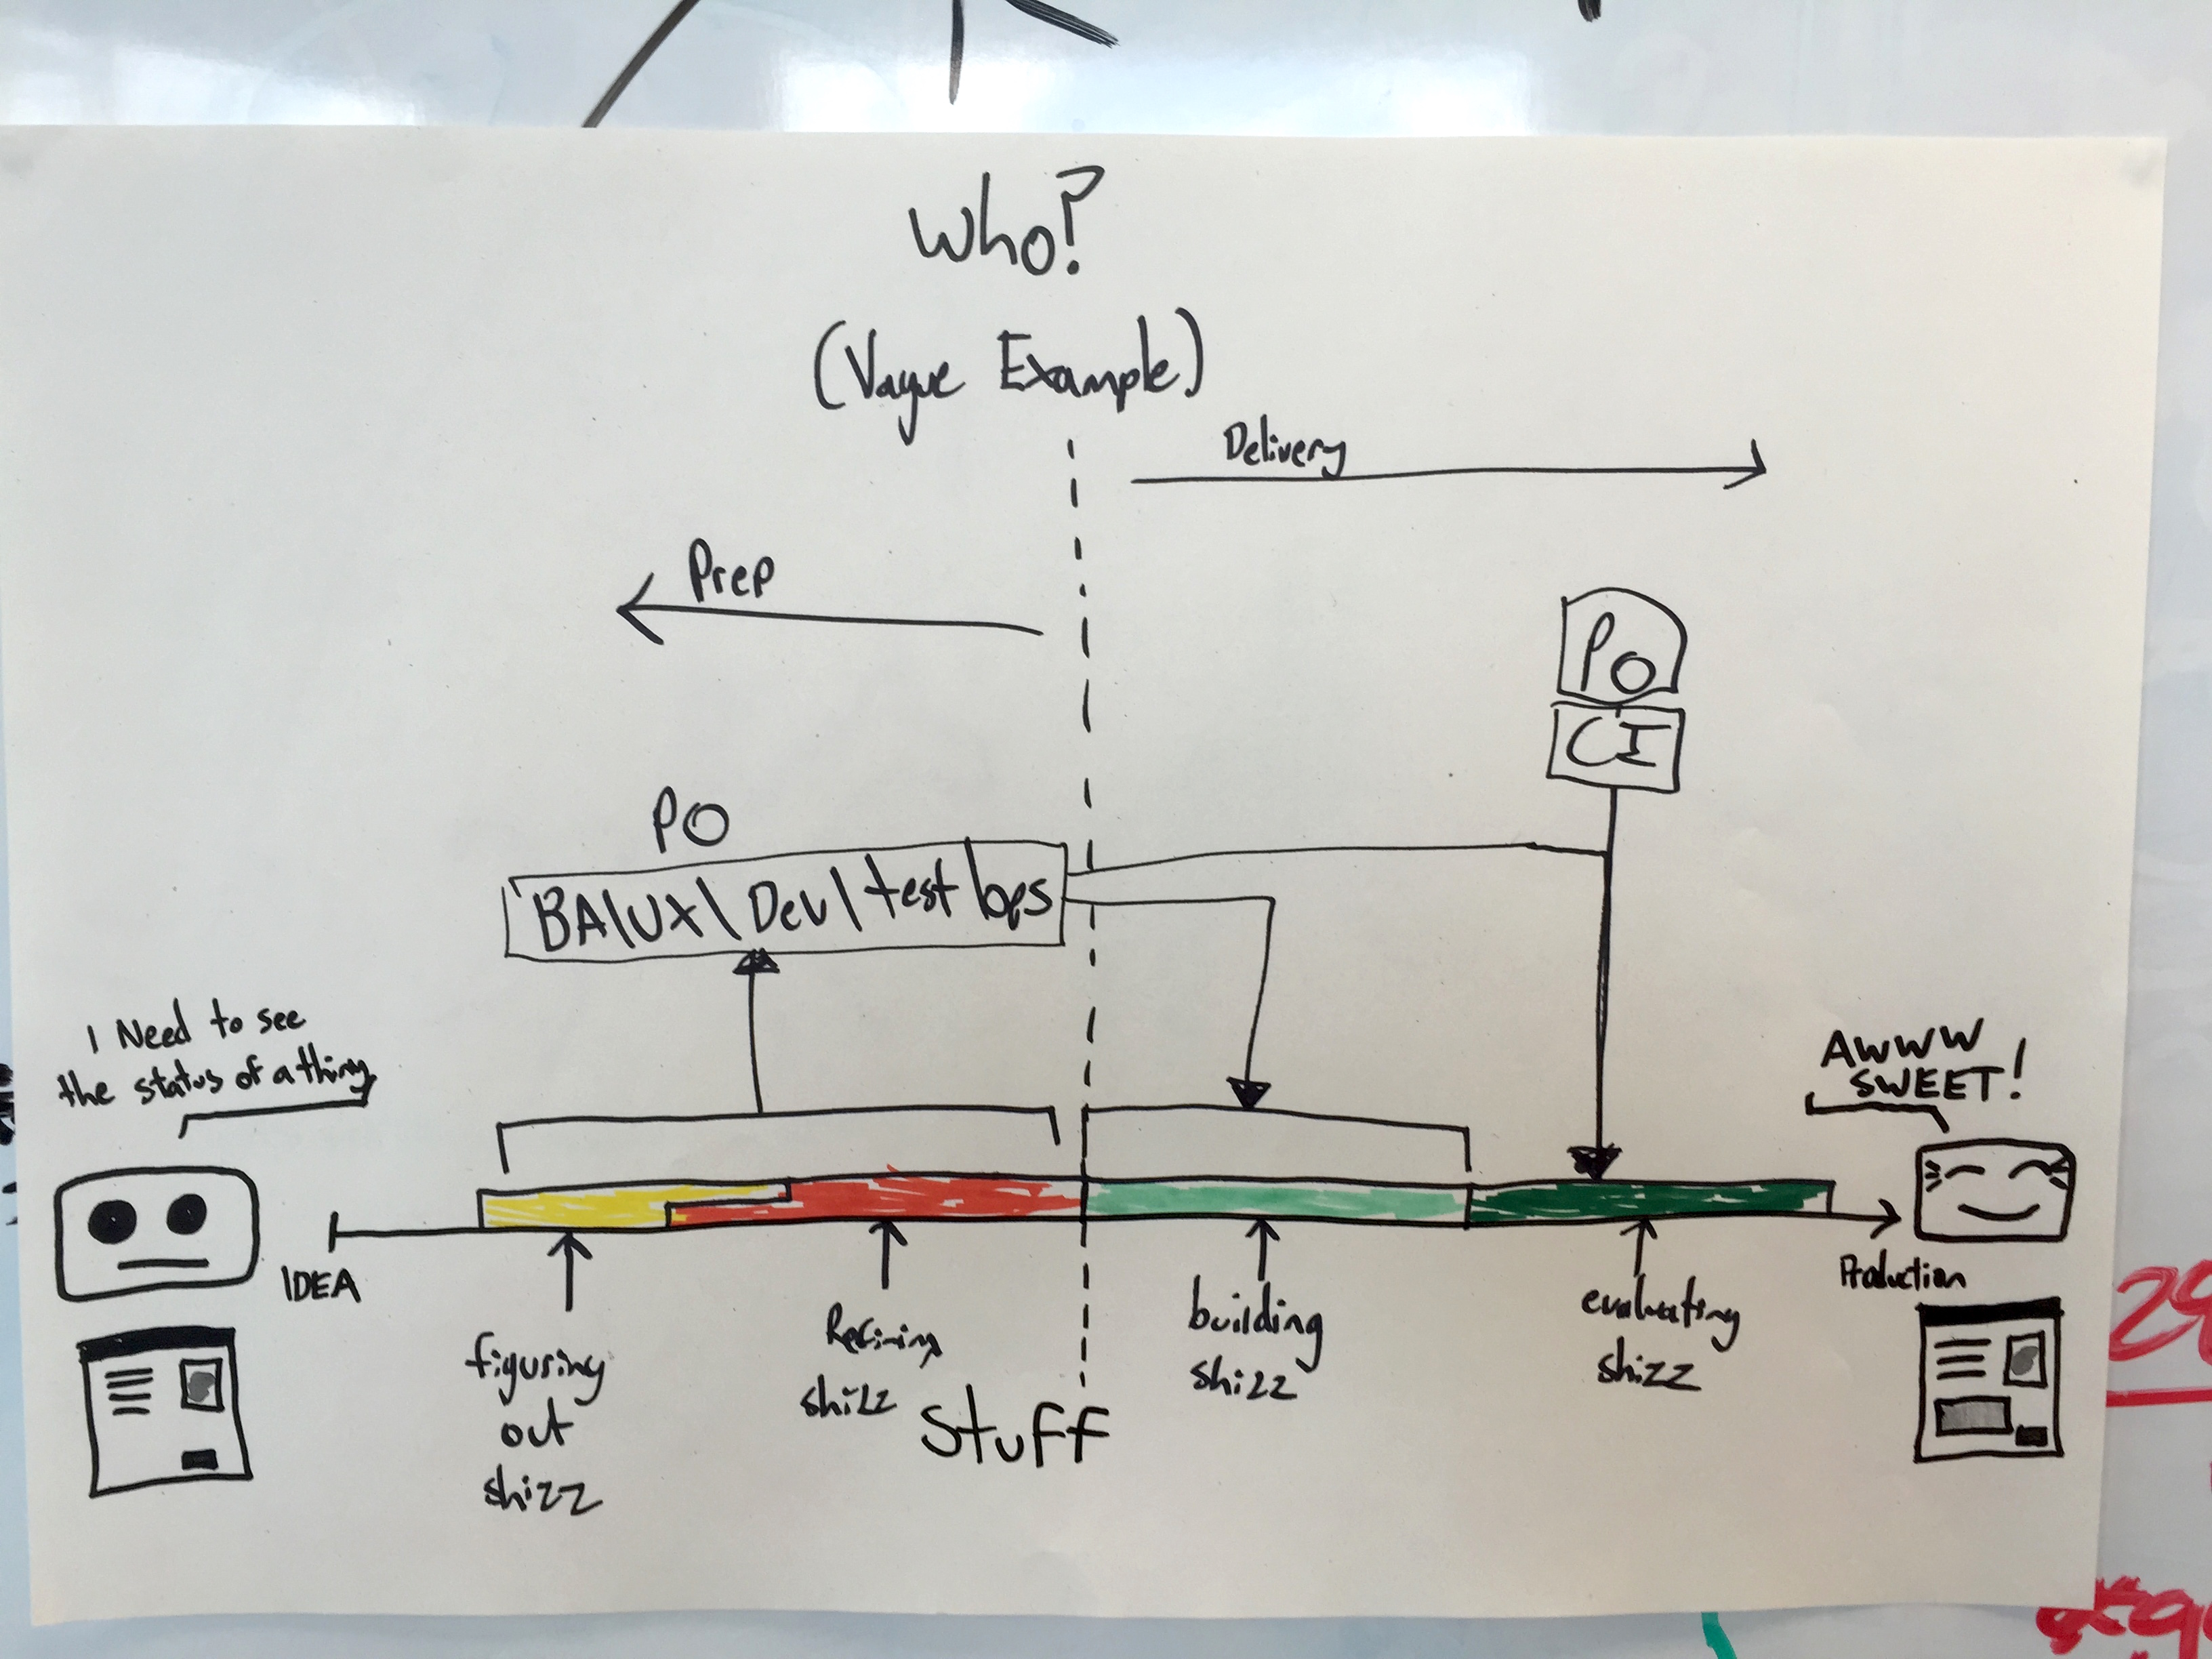 Who?
(Vague Example)
Delivery
Prep
PO
CI
PO
BA\UX\Dev/test/ops
I Need to see
the status of a thing
AWWW
SWEET!
IDEA
Production
figuring
out
shizz
Refining
shizz
Stuff
building
shizz
evaluating
shizz